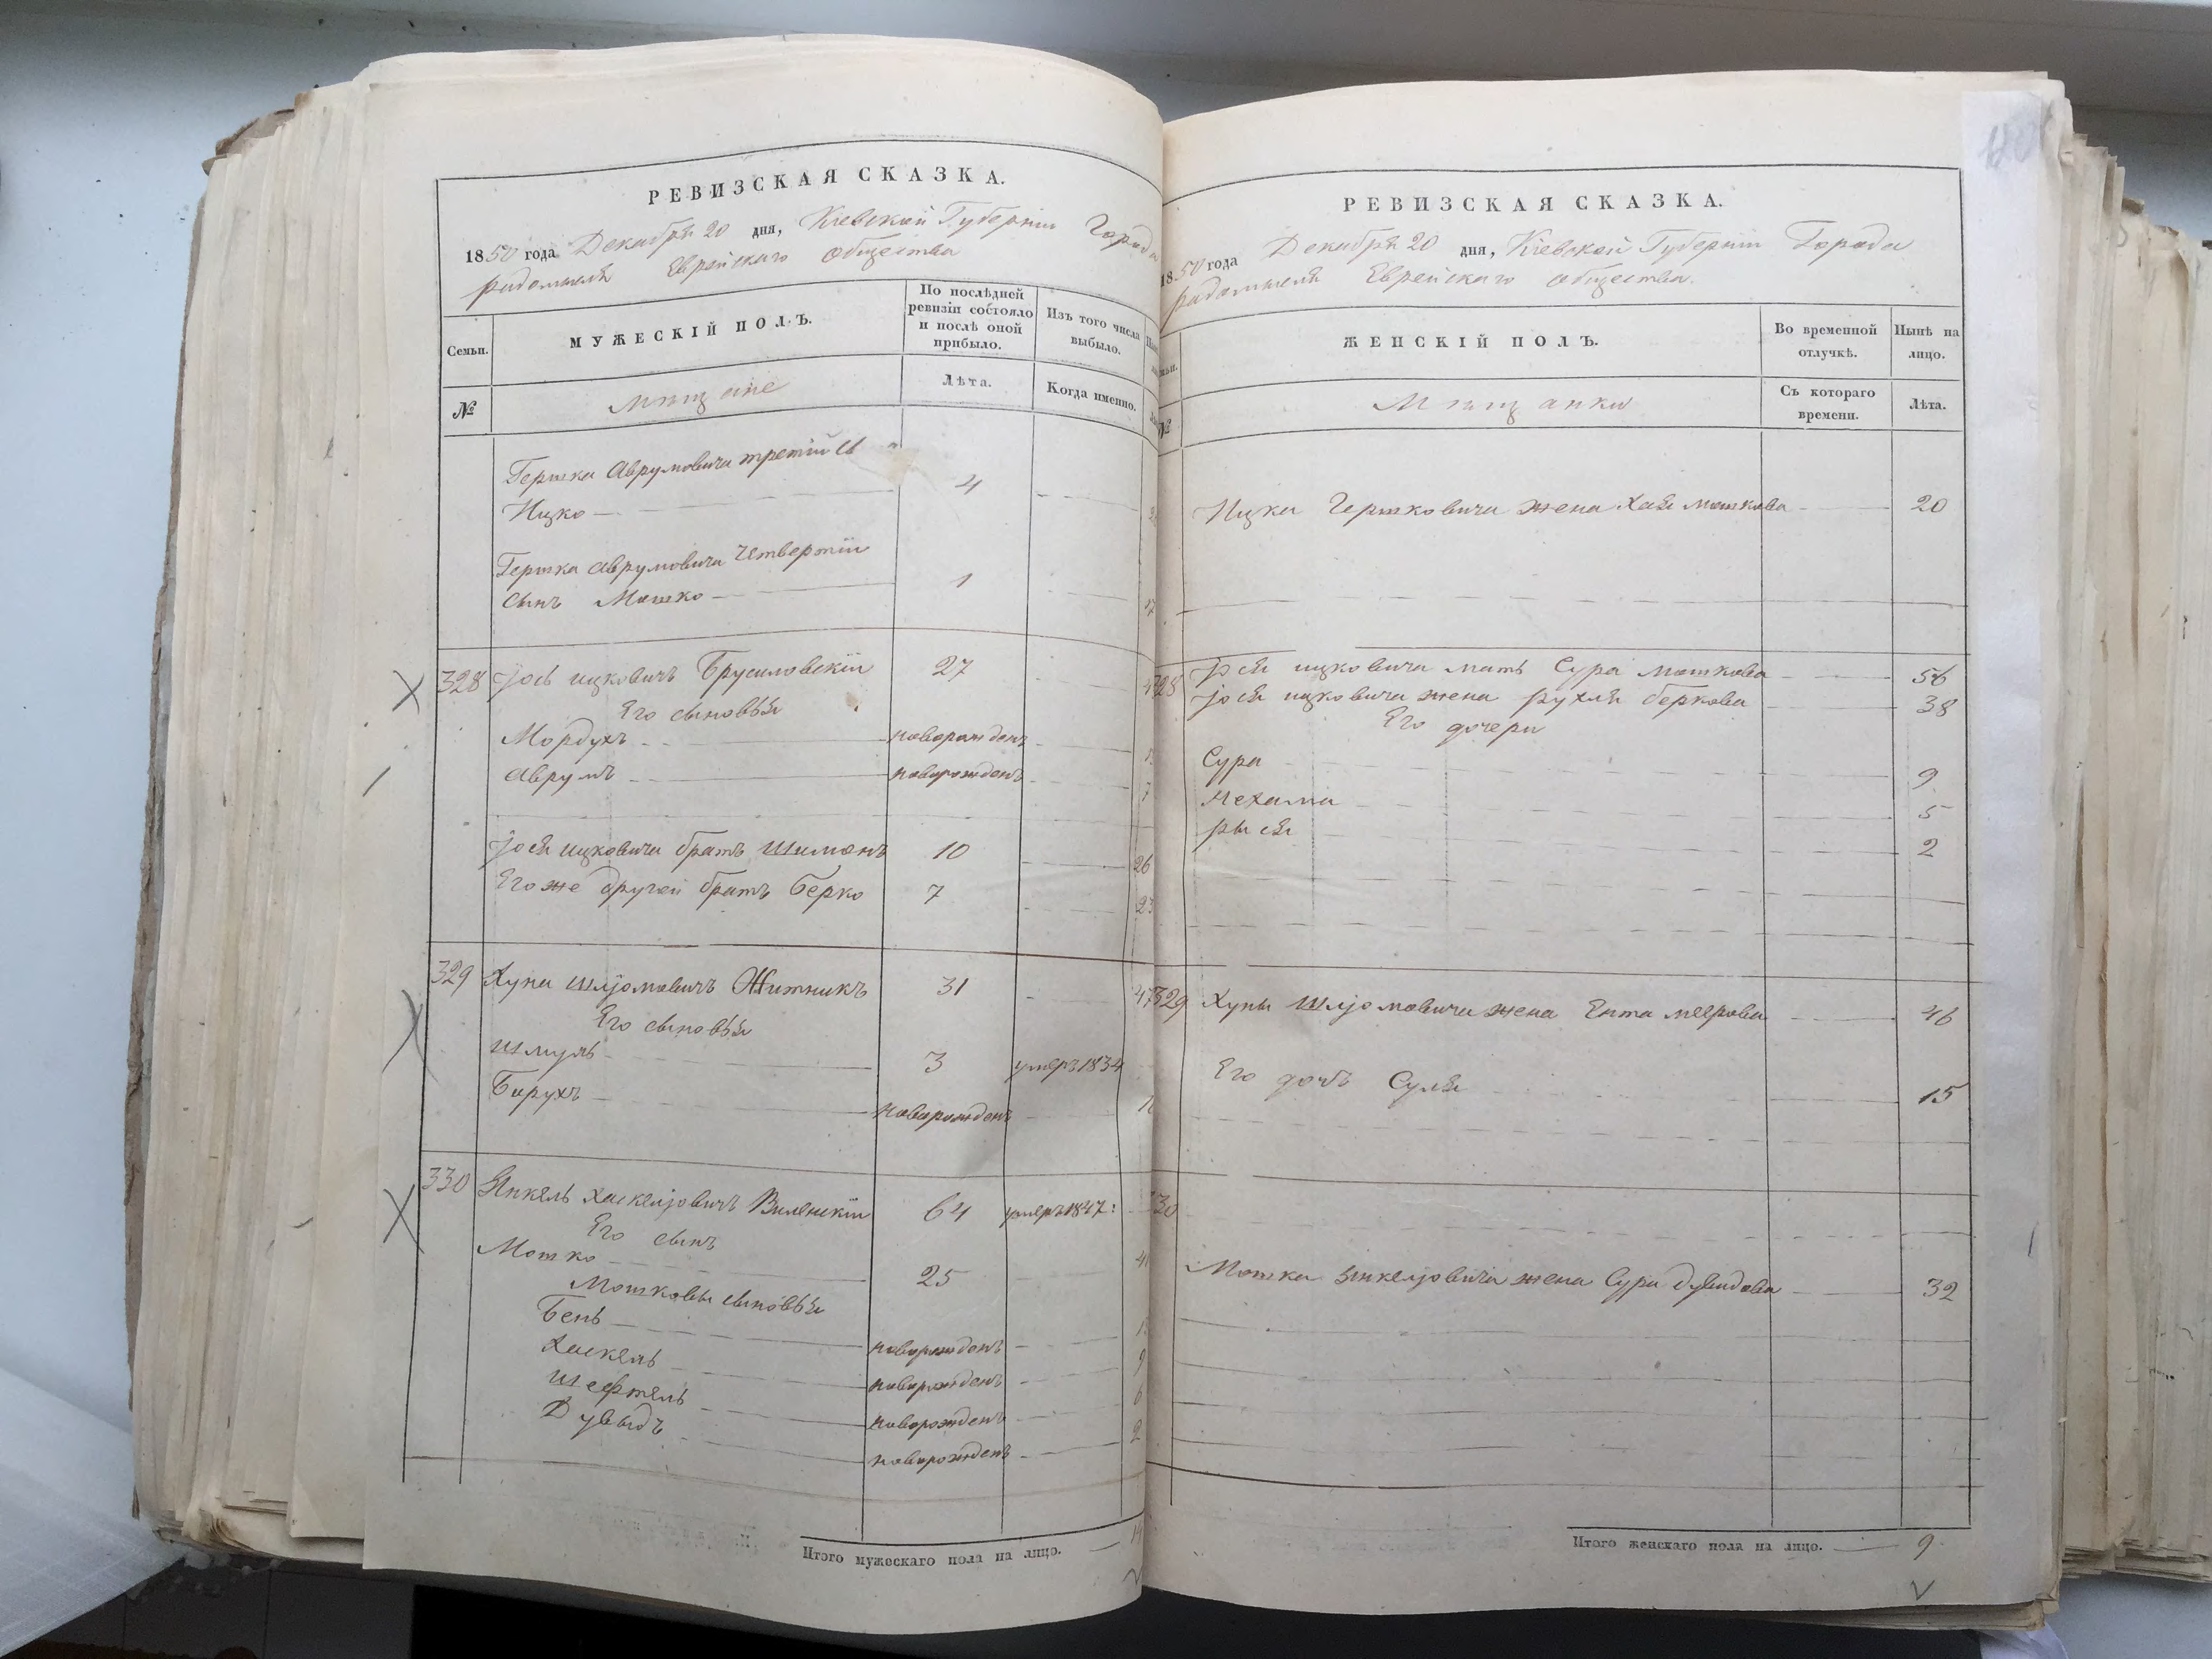 РЕВИЗСКАЯ СКАЗКА.
1850 года Декабря 20 дня, Кіевской Губерніи Города
радомысля Еврейскаго общества
Семьи.
МУЖЕСКІЙ ПОЛЪ.
По послѣдней ревизіи состояло и послѣ оной прибыло.
Изъ того числа выбыло.
№
мѣщане
Лѣта.
Когда именно.
Гершка Аврумовича третій
Ицко 4
Гершка Аврумовича Четвертій
сынъ Мошко 1
328 Іось ицковичъ Брусиловскій 27
Его сыновья
Мордухъ новорожденъ
Аврумъ новорожденъ
Іося ицковича братъ Шимонъ 10 26
Его же другой братъ Берко 7 23
329 Хуна Шліомовичъ Житникъ 31 47
Его сыновья
Шмуль 3 умеръ 1834
Барухъ новорожденъ
330 Янкель хаскеліовичъ Виленскій 64 умеръ 1847:
Его сынъ
Мошко 25
Мошковы сыновья
Бень новорожденъ
Хаскель новорожденъ 9
Шефтель новорожденъ 6
Дувыдъ новорожденъ 2
Итого мужескаго пола на лицо.
РЕВИЗСКАЯ СКАЗКА.
1850 года Декабря 20 дня, Кіевской Губерніи Города
радомысля Еврейскаго общества.
ЖЕНСКІЙ ПОЛЪ.
Во временной отлучкѣ.
Нынѣ на лицо.
№
Мѣщанки
Съ котораго времени.
Лѣта.
Ицка Гершковича жена Хая мошкова 20
28 Іося ицковича мать Сура мошкова 56
Іося ицковича жена рухля беркова 38
Его дочери
Сура 9
Нехама 5
рыся 2
329 Хуны Шліомовича жена Ента меерова 46
Его дочь Суля 15
30
Мошка янкеліовича жена Сура дувидова 32
Итого женскаго пола на лицо. 9